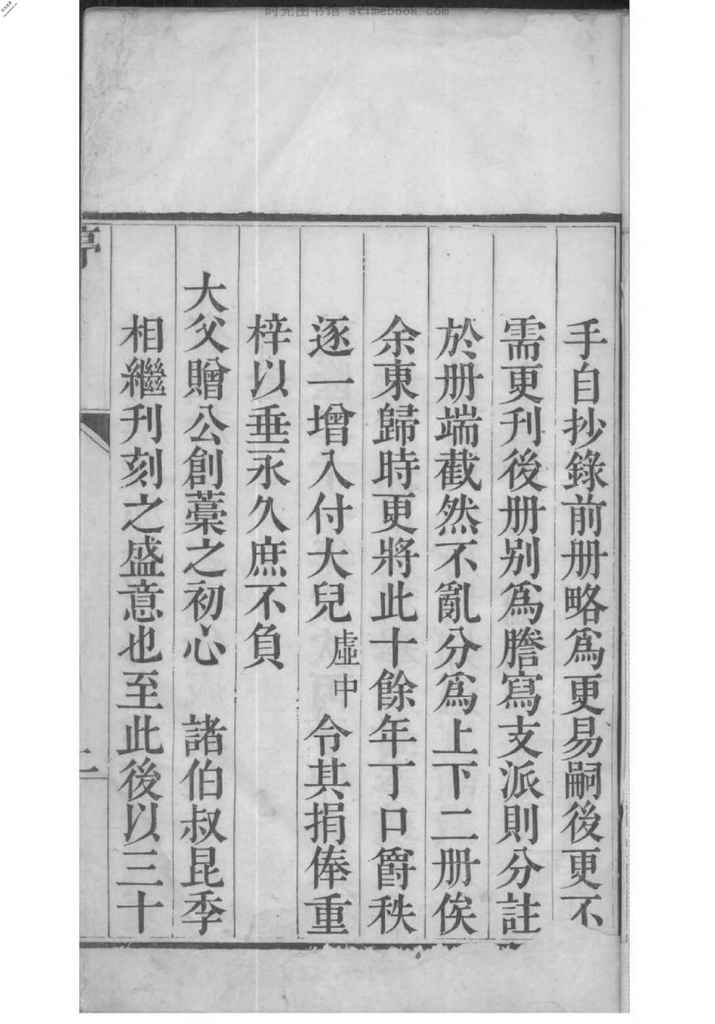 时光图书馆 stimebook.com
手自抄錄前册略爲更易嗣後更不
需更刊後册别爲謄寫支派則分註
於册端截然不亂分爲上下二册俟
余東歸時更將此十餘年丁口爵秩
逐一增入付大兒虛中令其捐俸重
梓以垂永久庶不負
大父贈公創藁之初心　諸伯叔昆季
相繼刋刻之盛意也至此後以三十
二